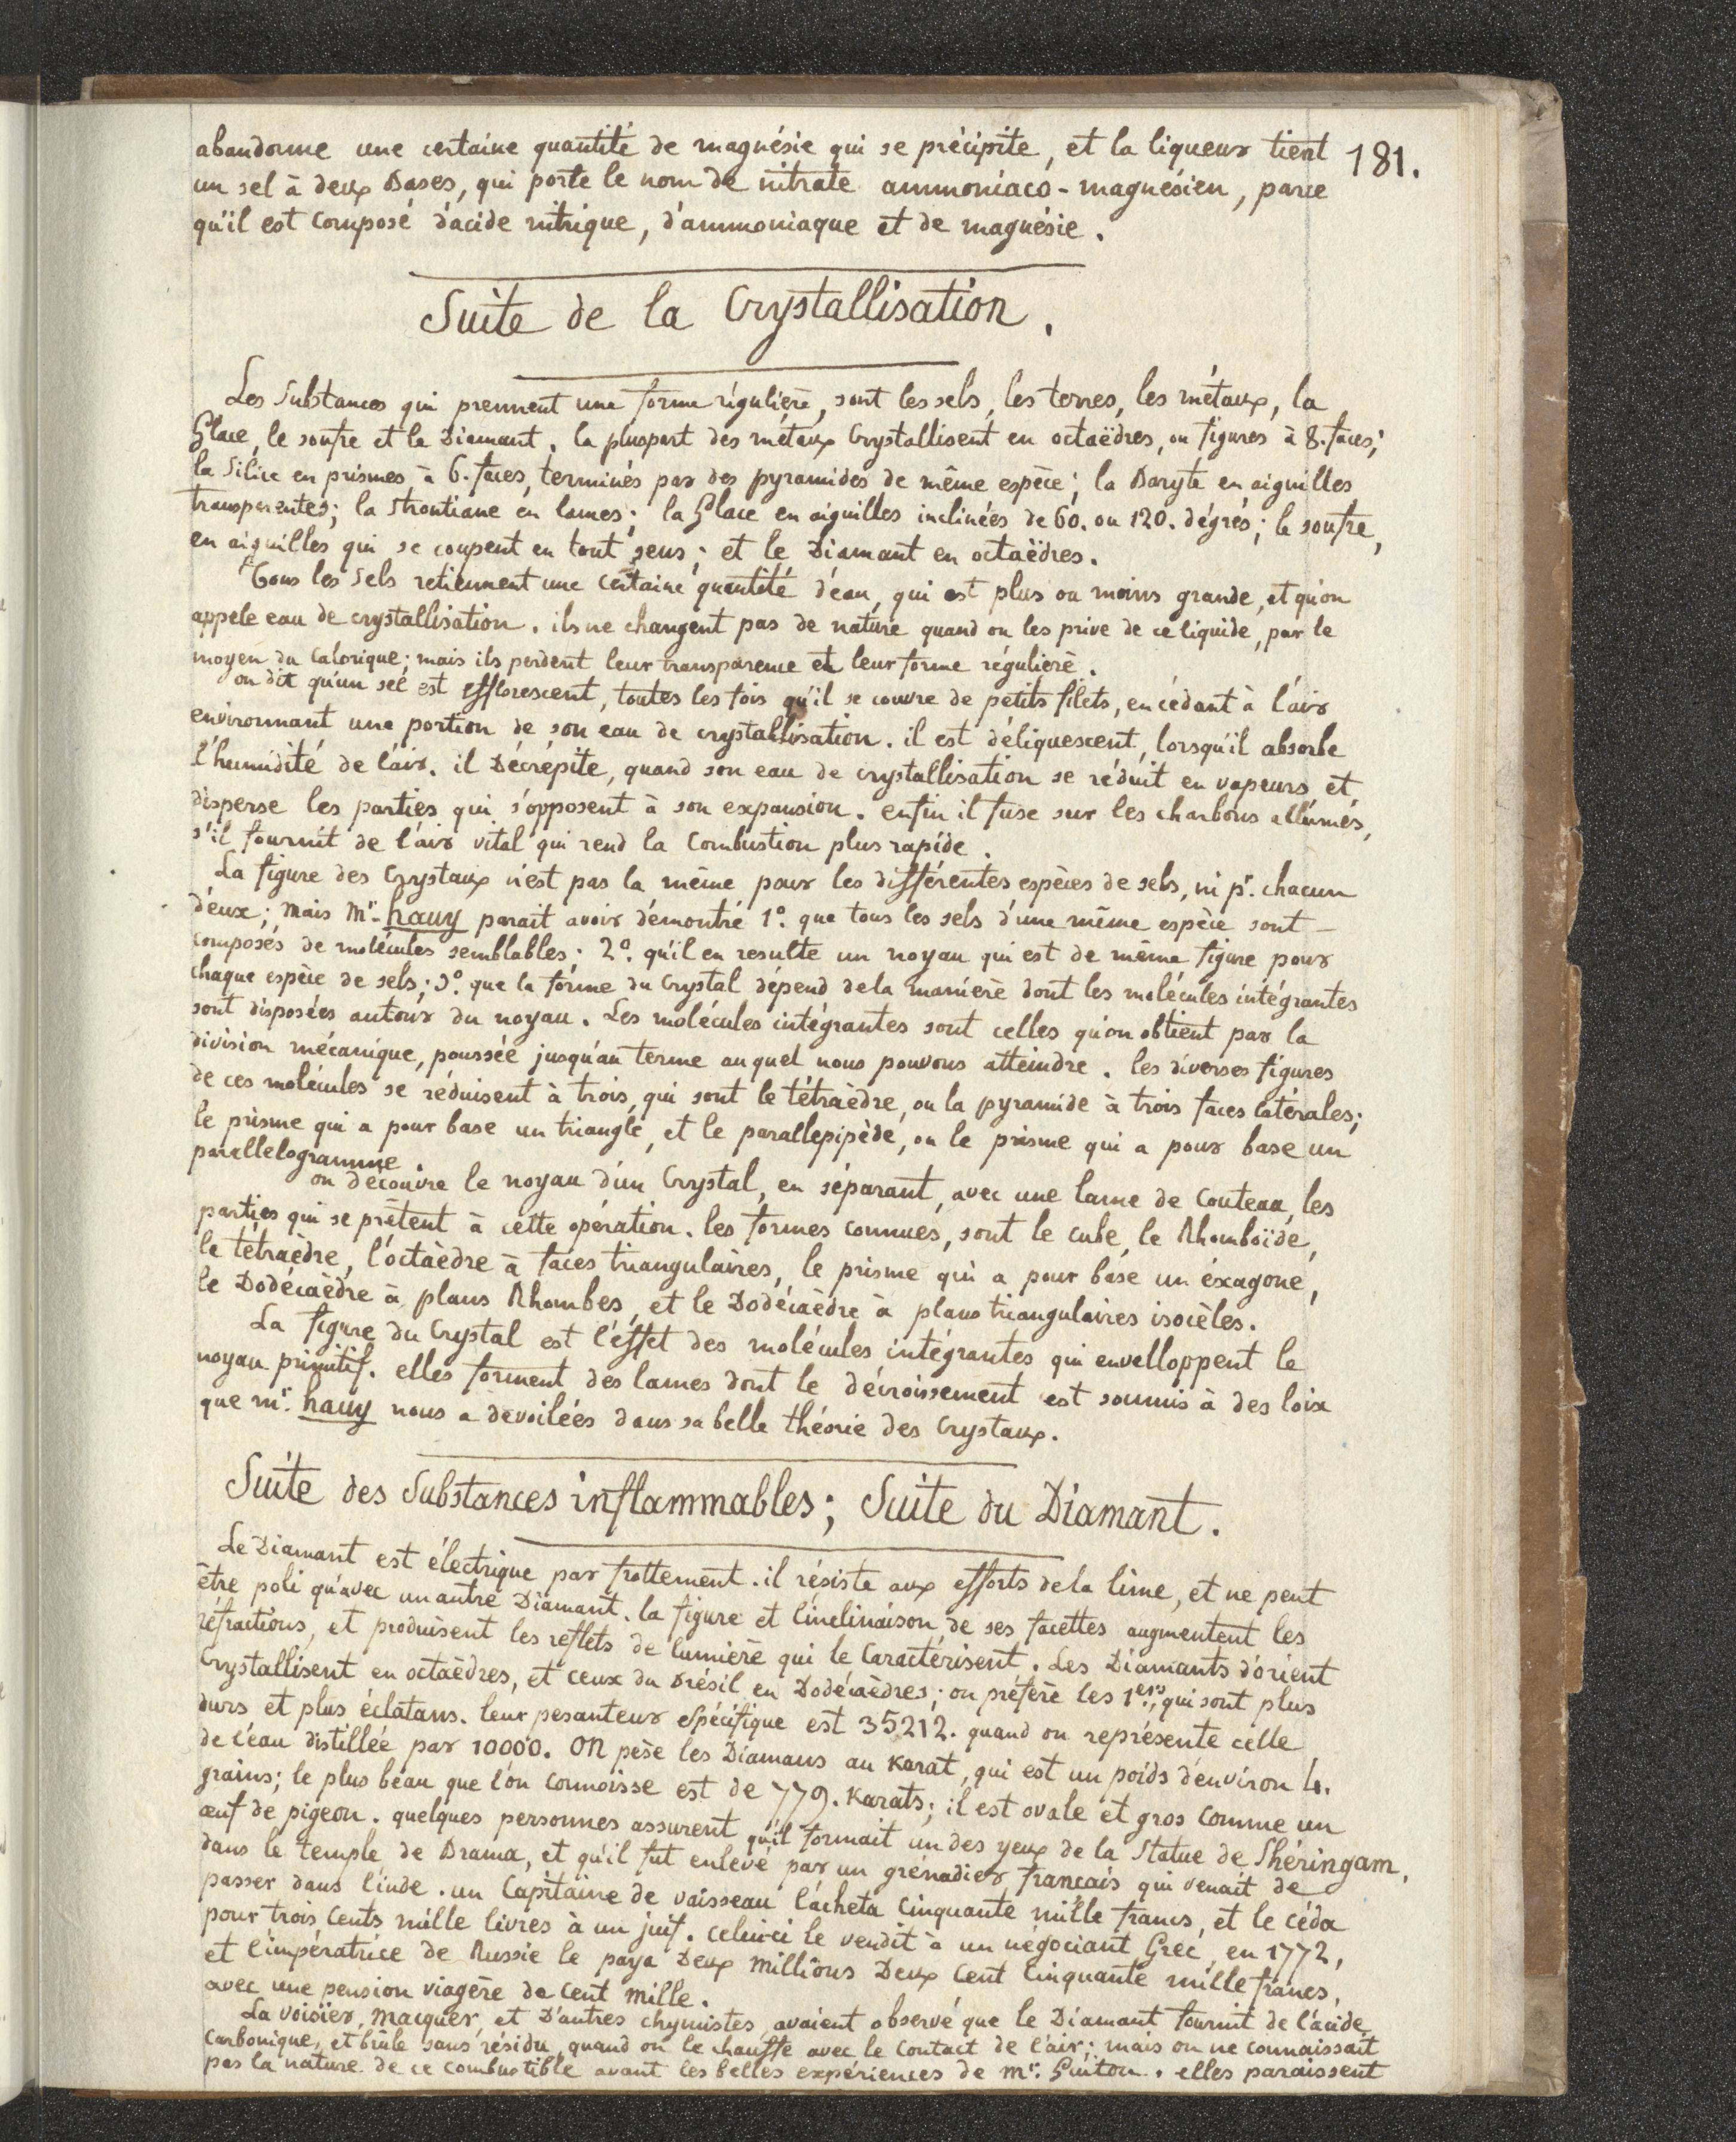 abandonne une certaine quantité de magnésie qui se précipite, et la liqueur tient
181.
un sel à deux Bases, qui porte le nom de nitrate ammoniaco-magnésien, parce
qu'il est composé d'acide nitrique, d'ammoniaque et de magnésie.
Suite de la Crystallisation.
Les Substances qui prennent une forme régulière, sont les sels, les terres, les métaux, la
Glace, le soufre et le Diamant. la pluspart des métaux Crystallisent en octaëdres, ou figures à 8. faces;
la Silice en prismes à 6. faces, terminés par des pyramides de même espèce; la Baryte en aiguilles
transparentes; la Strontiane en lames; la Glace en aiguilles inclinées de 60. ou 120. dégrés; le soufre,
en aiguilles qui se coupent en tout sens; et le Diamant en octaëdres.
Tous les Sels retiennent une certaine quantité d'eau, qui est plus ou moins grande, et qu'on
appele eau de crystallisation. ils ne changent pas de nature quand on les prive de ce liquide, par le
moyen du Calorique; mais ils perdent leur transparence et leur forme régulière.
on dit qu'un sel est efflorescent, toutes les fois qu'il se couvre de petits filets, en cédant à l'air
environnant une portion de son eau de crystallisation. il est déliquescent, lorsqu'il absorbe
l'humidité de l'air. il Décrépite, quand son eau de crystallisation se réduit en vapeurs et
disperse les parties qui s'opposent à son expansion. enfin il fuse sur les charbons allumés,
s'il fournit de l'air vital qui rend la Combustion plus rapide.
La figure des Crystaux n'est pas la même pour les différentes espèces de sels, ni pr. chacun
d'eux; mais Mr. hauy parait avoir démontré 1º. que tous les sels d'une même espèce sont
composés de molécules semblables; 2º. qu'il en resulte un noyau qui est de même figure pour
chaque espèce de sels; 3º. que la forme du Crystal dépend de la manière dont les molécules intégrantes
sont disposées autour du noyau. Les molécules intégrantes sont celles qu'on obtient par la
division mécanique, poussée jusqu'au terme auquel nous pouvons atteindre. les diverses figures
de ces molécules se réduisent à trois, qui sont le tétraèdre, ou la pyramide à trois faces latérales;
le prisme qui a pour base un triangle, et le parallepipède, ou le prisme qui a pour base un
parallelogramme.
on découvre le noyau d'un Crystal, en séparant, avec une lame de Couteau, les
parties qui se prêtent à cette opération. les formes connues, sont le cube, le Rhomboïde,
le tétraèdre, l'octaèdre à faces triangulaires, le prisme qui a pour base un éxagone,
le Dodécaèdre à plans Rhombes, et le Dodécaèdre à plans triangulaires isocèles.
La figure du Crystal est l'éffet des molécules intégrantes qui envelloppent le
noyau primitif. elles forment des lames dont le décroissement est soumis à des loix
que mr. hauy nous a devoilées dans sa belle théorie des Crystaux.
Suite des Substances inflammables; Suite du Diamant.
Le Diamant est électrique par frottement. il résiste aux efforts de la lime, et ne peut
être poli qu'avec un autre Diamant. la figure et l'inclinaison de ses facettes augmentent les
réfractions, et produisent les reflets de lumière qui le Caractérisent. Les Diamants d'orient
Crystallisent en octaèdres, et ceux du Brésil en Dodécaèdres; on préfère les 1ers., qui sont plus
durs et plus éclatans. leur pesanteur Spécifique est 35212. quand on représente celle
de l'éau distillée par 10000. On pèse les Diamans au Karat, qui est un poids d'environ 4.
grains; le plus beau que l'on connoisse est de 779. Karats; il est ovale et gros comme un
œuf de pigeon. quelques personnes assurent qu'il formait un des yeux de la Statue de Shéringam,
dans le temple de Brama, et qu'il fut enlevé par un grenadier français qui venait de
passer dans l'inde. un Capitaine de vaisseau l'acheta Cinquante mille francs, et le céda
pour trois Cents mille livres à un juif. celui-ci le vendit à un négociant Grec, en 1772,
et l'impératrice de Russie le paya Deux millions Deux Cent Cinquante mille francs,
avec une pension viagère de Cent mille.
La voisier, Macquer, et D'autres chymistes avaient observé que le Diamant fournit de l'acide
Carbonique, et brûle sans résidu, quand on le chauffe avec le Contact de l'air; mais on ne connaissait
pas la nature de ce combustible avant les belles expériences de mr. Guiton. elles paraissent